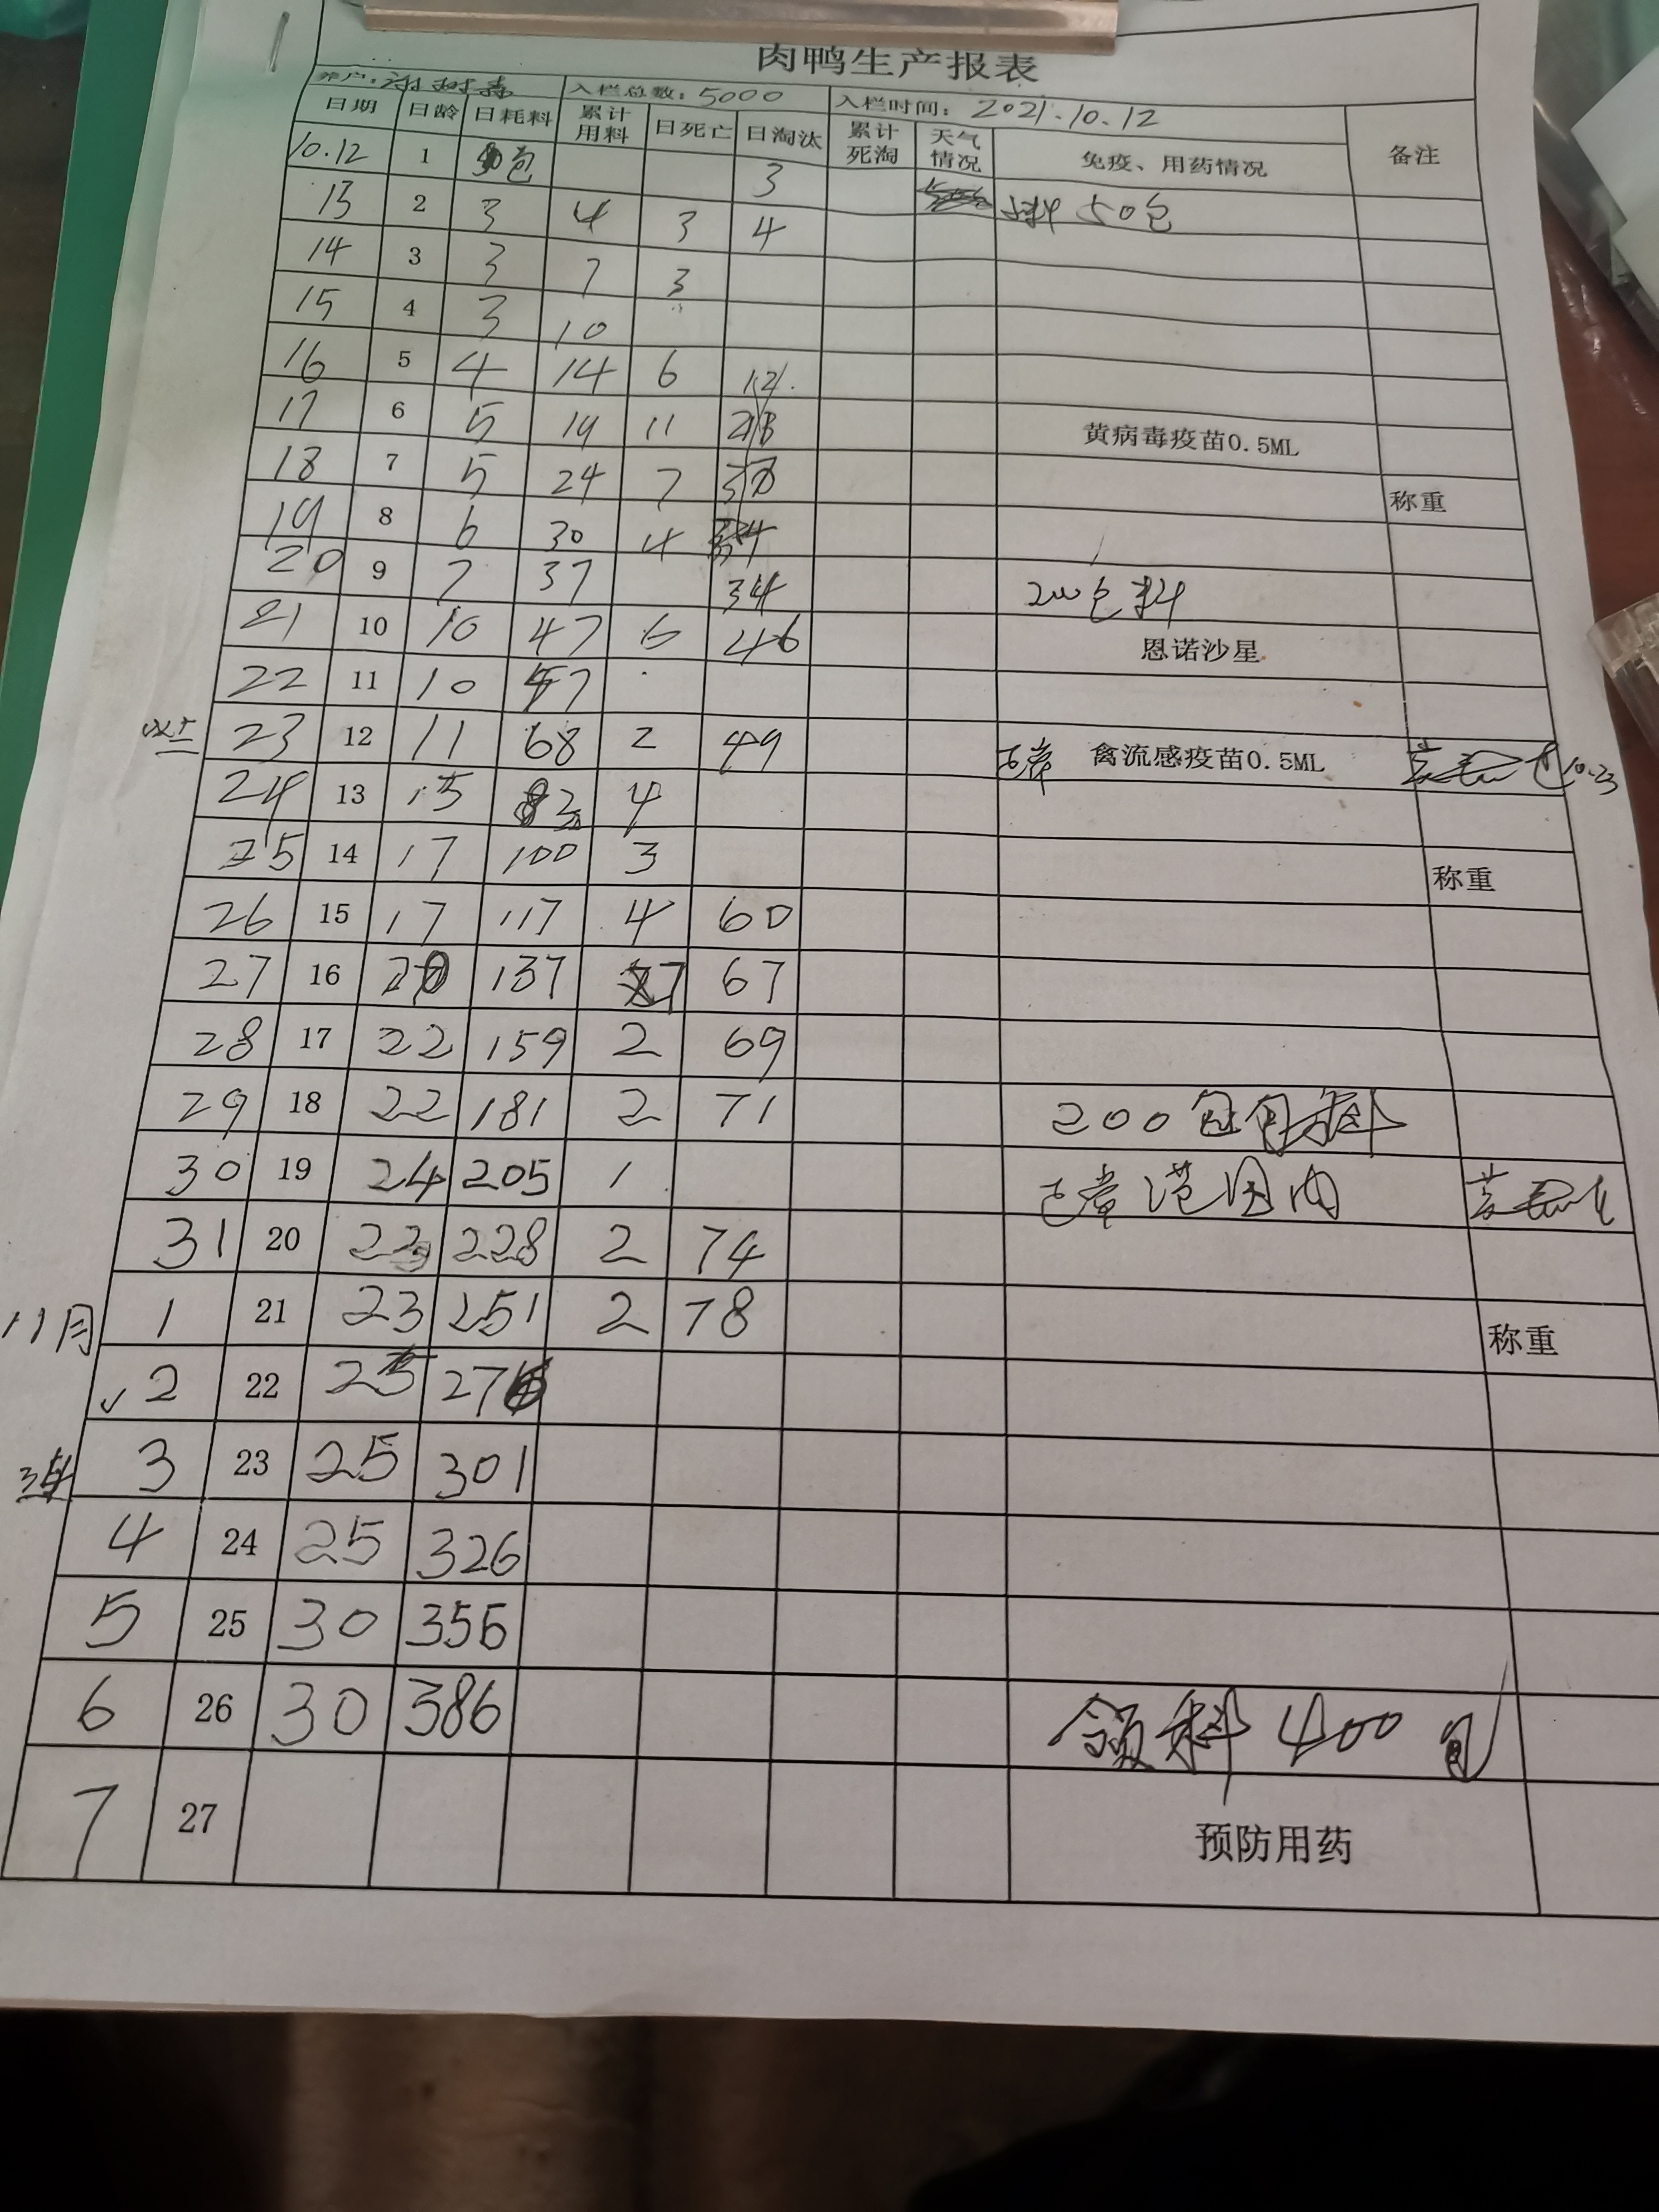 肉鸭生产报表
养户: 入栏总数: 5000 入栏时间: 2021.10.12
日期 日龄 日耗料 累计用料 日死亡 日淘汰 累计死淘 天气情况 免疫、用药情况 备注
10.12 1 包 3
13 2 3 4 3 4 料50包
14 3 3 7 3
15 4 3 10
16 5 4 14 6 12
17 6 5 19 11 黄病毒疫苗0.5ML
18 7 5 24 7 称重
19 8 6 30 4 34
20 9 7 37 34 200包料
21 10 10 47 6 46 恩诺沙星
22 11 10 57
23 12 11 68 2 49 正常 禽流感疫苗0.5ML 10.23
24 13 15 83 4
25 14 17 100 3 称重
26 15 17 117 4 60
27 16 20 137 7 67
28 17 22 159 2 69
29 18 22 181 2 71 200包
30 19 24 205 1 正常范围内
31 20 23 228 2 74
11月 1 21 23 251 2 78 称重
✓2 22 25 276
3 23 25 301
4 24 25 326
5 25 30 356
6 26 30 386 领料400包
7 27 预防用药